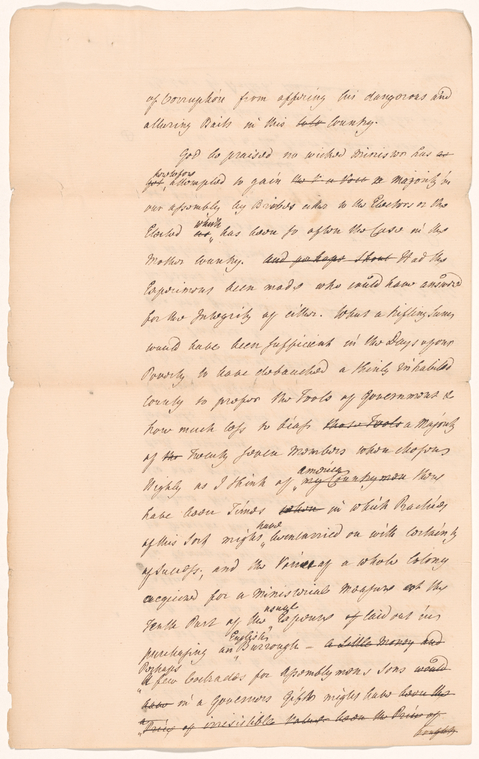 of Corruption from offering his dangerous and
alluring Baits in this Country.
God be praised no wicked Minister has as
heretofore
yet attempted to gain the a Majority in
our assembly by Bribes either to the Electors or the
which
Elected as has been so often the Case in the
Mother Country. And perhaps Had the
Experiment been made who could have answered
for the Integrity of either. What a trifling Sum
would have been sufficient in the Days of our
Poverty to have debauched a thinly inhabited
County to prefer the Tools of Government &
how much less to biass those Tools a Majority
of the Twenty seven Members when chosen
among
Highly as I think of my Countrymen there
have been Times when in which Practices
have
of this Sort might been carried on with Certainty
of Success, and the Voice of a whole Colony
acquired for a ministerial Measure at the
usual
Tenth Part of the Expence of laid out in
English
purchasing an Burrough – a little Money and
Perhaps
A few Contracts for Assemblymens Sons would
have in a Governors Gifts might have been the
Price of irresistible Value been the Price of